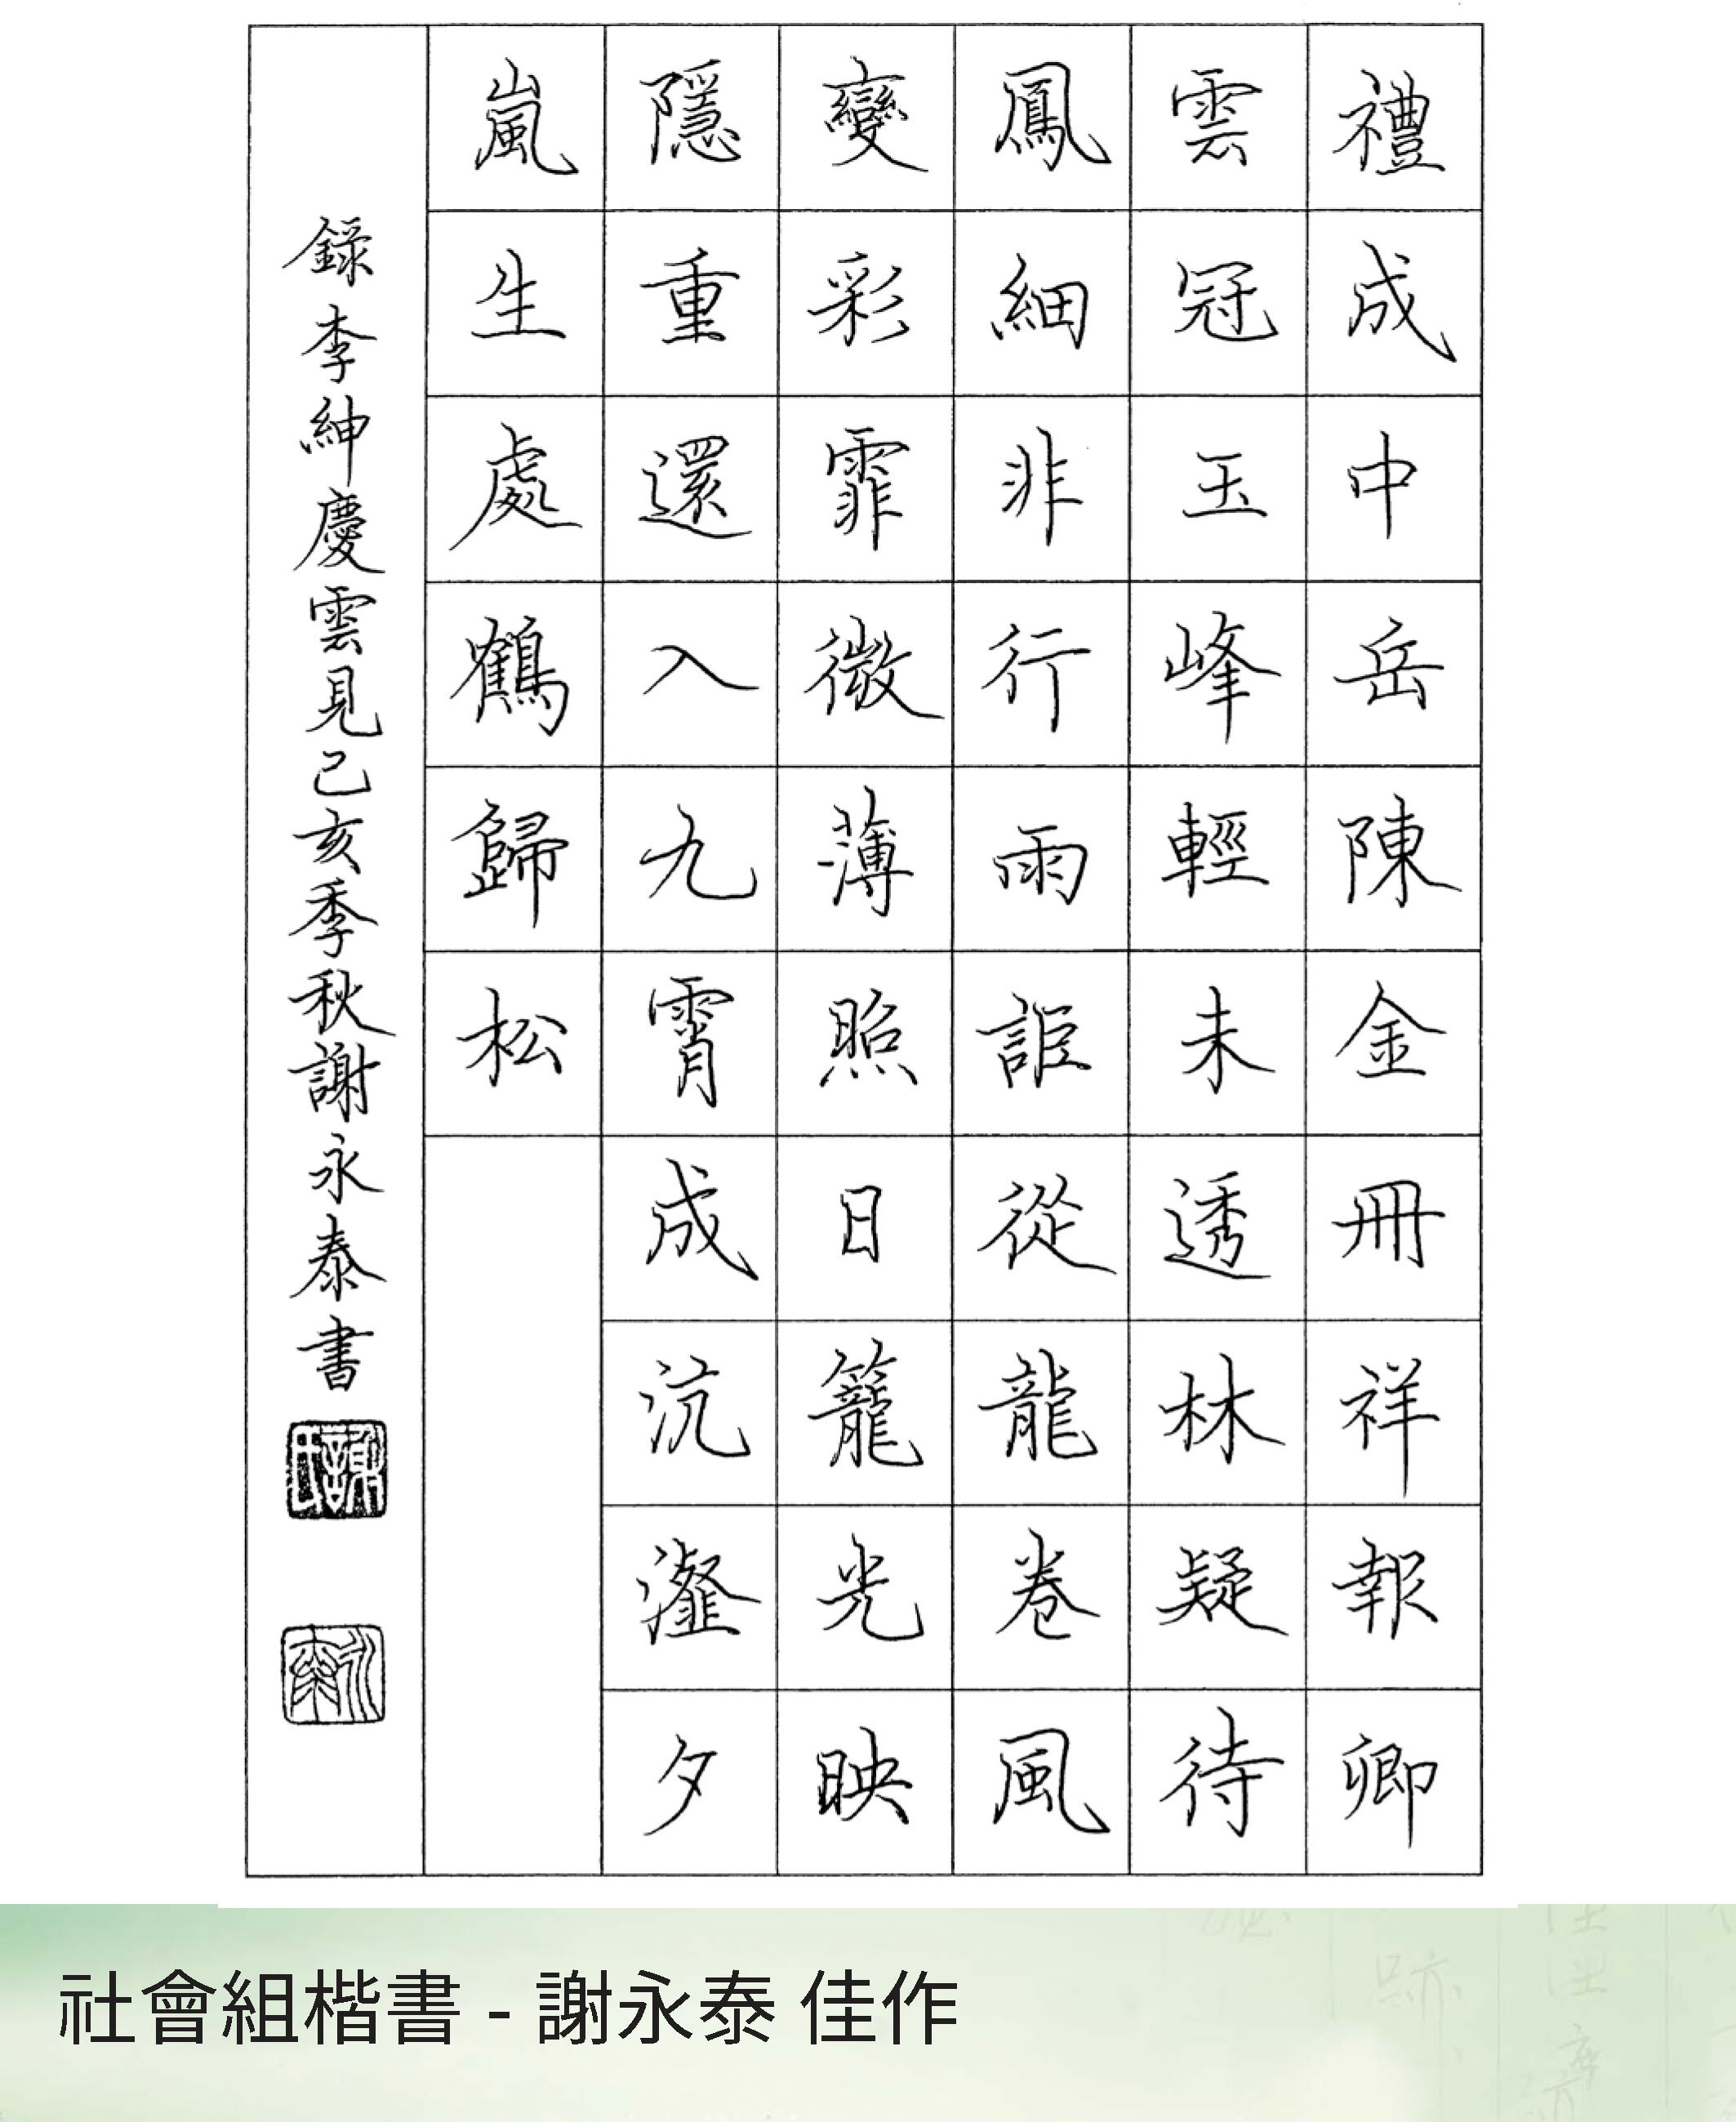 禮成中岳陳金冊祥報卿
雲冠玉峰輕未透林疑待
鳳細非行雨詎從龍卷風
變彩霏微薄照日籠光映
隱重還入九霄成沆瀣夕
嵐生處鶴歸松
錄李紳慶雲見己亥季秋謝永泰書
社會組楷書 - 謝永泰 佳作